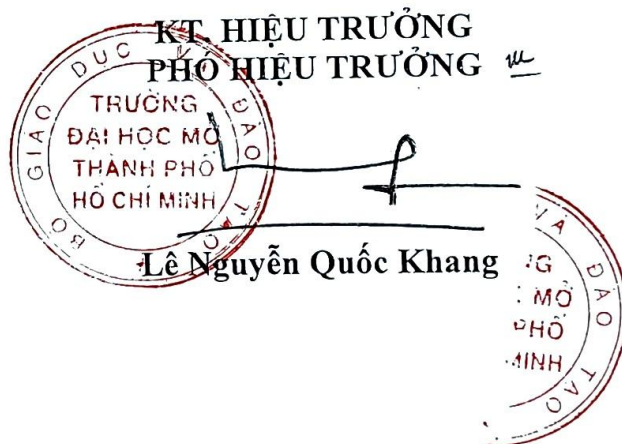 KT. HIỆU TRƯỞNG
PHÓ HIỆU TRƯỞNG
BỘ GIÁO DỤC VÀ ĐÀO TẠO
TRƯỜNG
ĐẠI HỌC MỞ
THÀNH PHỐ
HỒ CHÍ MINH
Lê Nguyễn Quốc Khang
VÀ ĐÀO TẠO
NG
C MỞ
PHỐ
MINH